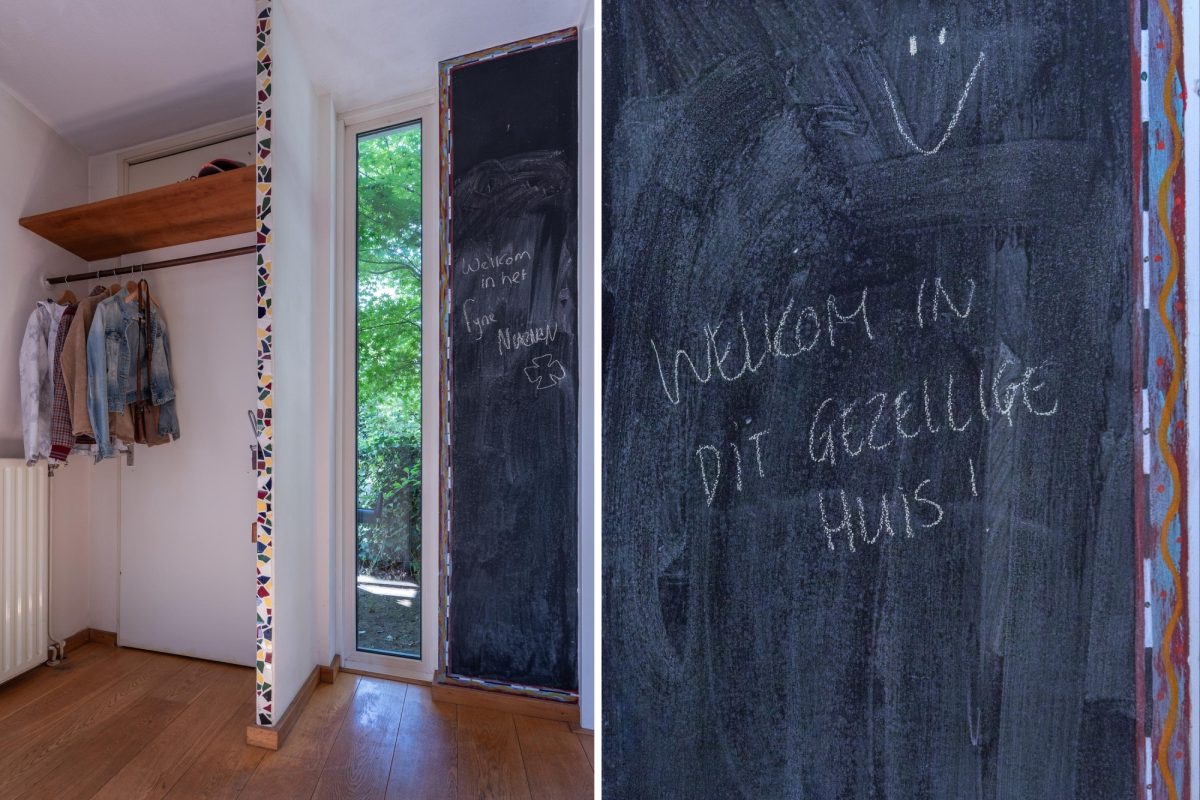 Welkom
in het
fyne
WELKOM IN
DIT GEZELLIGE
HUIS!